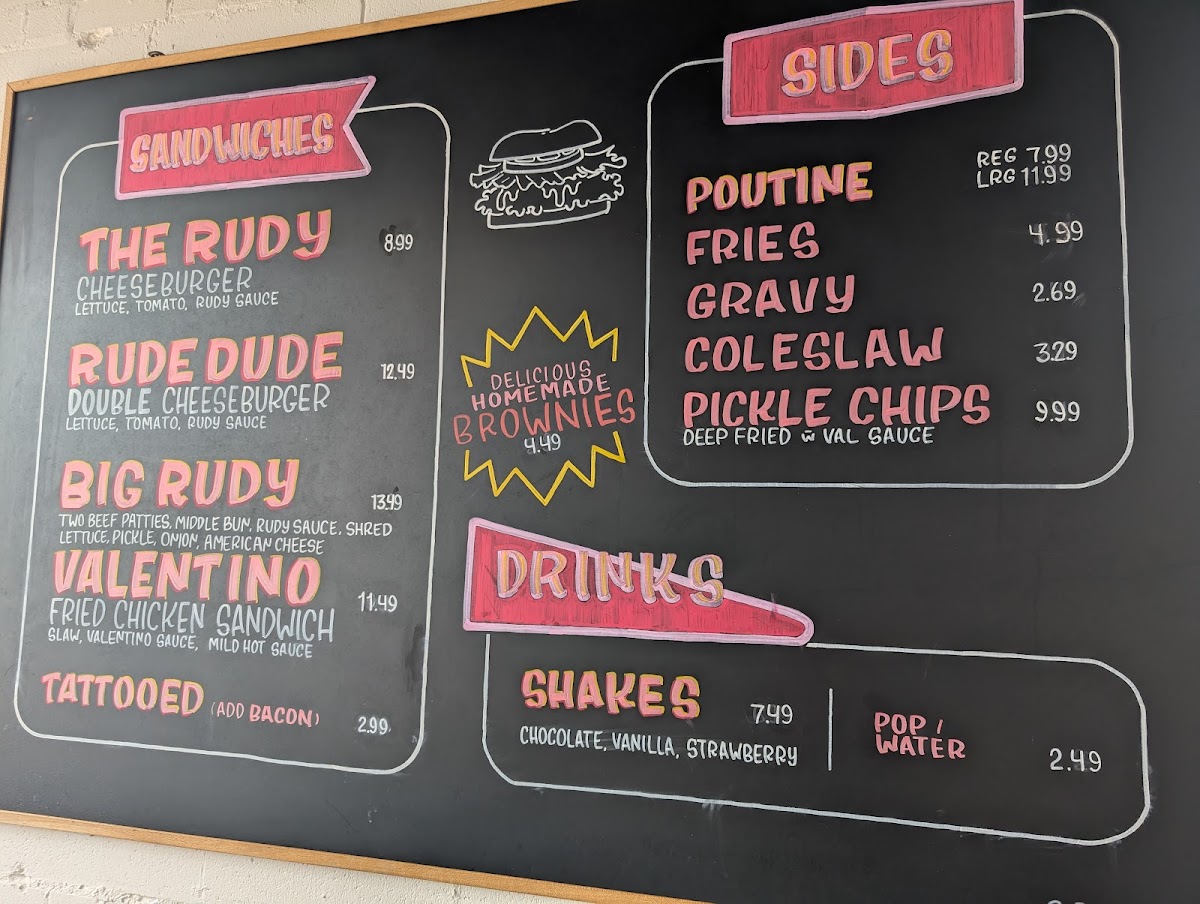 SANDWICHES
THE RUDY 8.99
CHEESEBURGER
LETTUCE, TOMATO, RUDY SAUCE
RUDE DUDE 12.49
DOUBLE CHEESEBURGER
LETTUCE, TOMATO, RUDY SAUCE
BIG RUDY 13.49
TWO BEEF PATTIES, MIDDLE BUN, RUDY SAUCE, SHRED
LETTUCE, PICKLE, ONION, AMERICAN CHEESE
VALENTINO 11.49
FRIED CHICKEN SANDWICH
SLAW, VALENTINO SAUCE, MILD HOT SAUCE
TATTOOED (ADD BACON) 2.99
DELICIOUS
HOMEMADE
BROWNIES
4.49
SIDES
POUTINE REG 7.99
LRG 11.99
FRIES 4.99
GRAVY 2.69
COLESLAW 3.29
PICKLE CHIPS 9.99
DEEP FRIED w̄ VAL SAUCE
DRINKS
SHAKES 7.49
CHOCOLATE, VANILLA, STRAWBERRY
POP /
WATER 2.49